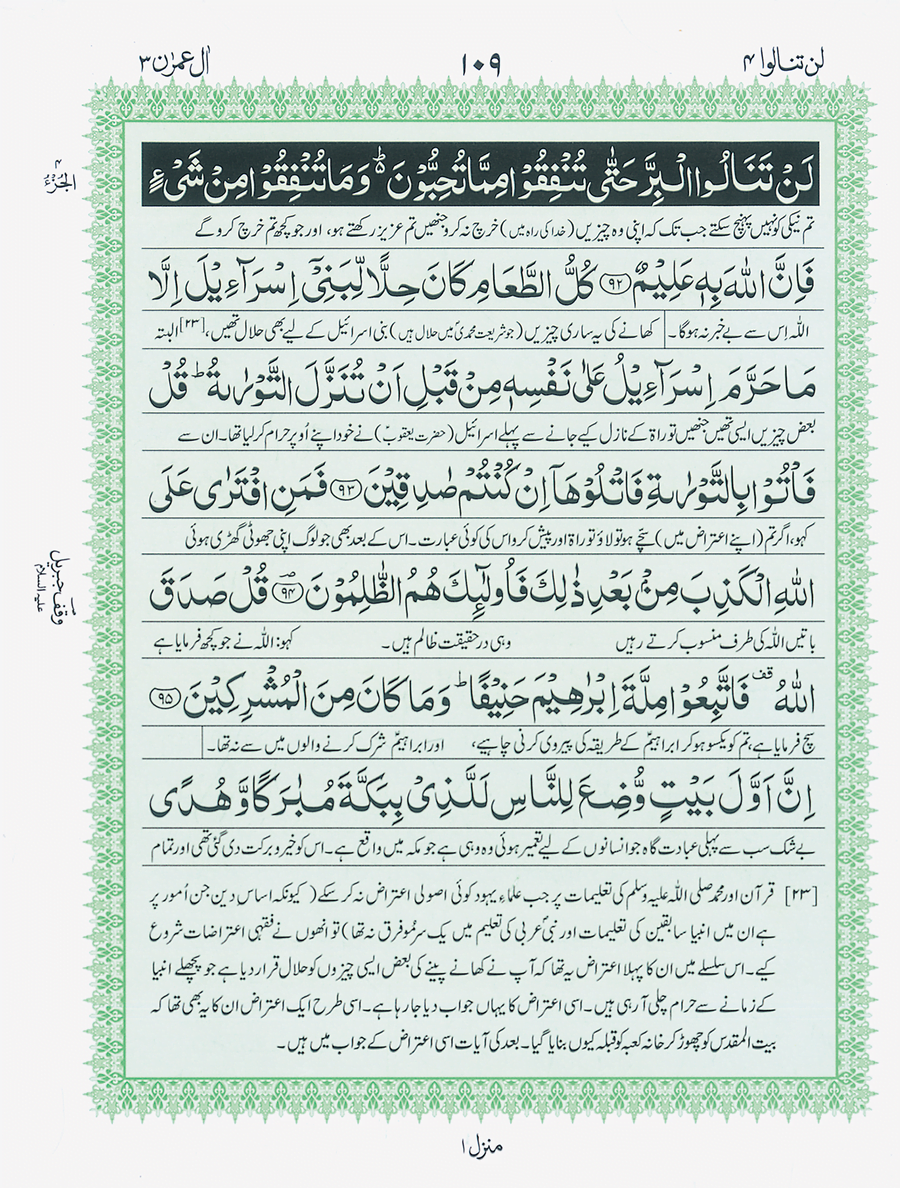 لن تنالوا ۴
۱۰۹
اٰل عمرٰن ۳
۴
الجزء
لَنْ تَنَالُوا الْبِرَّ حَتّٰى تُنْفِقُوْا مِمَّا تُحِبُّوْنَ ؕ وَمَا تُنْفِقُوْا مِنْ شَىْءٍ
تم نیکی کو نہیں پہنچ سکتے جب تک کہ اپنی وہ چیزیں (خدا کی راہ میں) خرچ نہ کرو جنھیں تم عزیز رکھتے ہو، اور جو کچھ تم خرچ کرو گے
فَاِنَّ اللّٰهَ بِهٖ عَلِيْمٌ ﴿۹۲﴾ كُلُّ الطَّعَامِ كَانَ حِلًّا لِّبَنِىْٓ اِسْرَآءِيْلَ اِلَّا
اللہ اس سے بے خبر نہ ہوگا۔ کھانے کی یہ ساری چیزیں (جو شریعت محمدیؐ میں حلال ہیں) بنی اسرائیل کے لیے بھی حلال تھیں،[۲۳] البتہ
مَا حَرَّمَ اِسْرَآءِيْلُ عَلٰى نَفْسِهٖ مِنْ قَبْلِ اَنْ تُنَزَّلَ التَّوْرٰىةُ ؕ قُلْ
بعض چیزیں ایسی تھیں جنھیں توراۃ کے نازل کیے جانے سے پہلے اسرائیل (حضرت یعقوبؑ) نے خود اپنے اُوپر حرام کر لیا تھا۔ ان سے
فَاْتُوْا بِالتَّوْرٰىةِ فَاتْلُوْهَآ اِنْ كُنْتُمْ صٰدِقِيْنَ ﴿۹۳﴾ فَمَنِ افْتَرٰى عَلَى
کہو، اگر تم (اپنے اعتراض میں) سچّے ہو تو لاؤ توراۃ اور پیش کرو اس کی کوئی عبارت۔ اس کے بعد بھی جو لوگ اپنی جھوٹی گھڑی ہوئی
وقف جبریل
علیہ السلام
اللّٰهِ الْكَذِبَ مِنْۢ بَعْدِ ذٰلِكَ فَاُولٰٓئِكَ هُمُ الظّٰلِمُوْنَ ﴿۹۴﴾ قُلْ صَدَقَ
باتیں اللہ کی طرف منسوب کرتے رہیں وہی درحقیقت ظالم ہیں۔ کہو: اللہ نے جو کچھ فرمایا ہے
اللّٰهُ قف فَاتَّبِعُوْا مِلَّةَ اِبْرٰهِيْمَ حَنِيْفًا ؕ وَمَا كَانَ مِنَ الْمُشْرِكِيْنَ ﴿۹۵﴾
سچ فرمایا ہے، تم کو یکسو ہو کر ابراہیمؑ کے طریقہ کی پیروی کرنی چاہیے، اور ابراہیمؑ شرک کرنے والوں میں سے نہ تھا۔
اِنَّ اَوَّلَ بَيْتٍ وُّضِعَ لِلنَّاسِ لَلَّذِىْ بِبَكَّةَ مُبٰرَكًا وَّهُدًى
بے شک سب سے پہلی عبادت گاہ جو انسانوں کے لیے تعمیر ہوئی وہ وہی ہے جو مکہ میں واقع ہے۔ اس کو خیر و برکت دی گئی تھی اور تمام
[۲۳] قرآن اور محمد صلی اللہ علیہ وسلم کی تعلیمات پر جب علماء یہود کوئی اصولی اعتراض نہ کر سکے (کیونکہ اساس دین جن اُمور پر
ہے ان میں انبیا سابقین کی تعلیمات اور نبی عربی کی تعلیم میں یک سرِ مُو فرق نہ تھا) تو انھوں نے فقہی اعتراضات شروع
کیے۔ اس سلسلے میں ان کا پہلا اعتراض یہ تھا کہ آپ نے کھانے پینے کی بعض ایسی چیزوں کو حلال قرار دیا ہے جو پچھلے انبیا
کے زمانے سے حرام چلی آ رہی ہیں۔ اسی اعتراض کا یہاں جواب دیا جا رہا ہے۔ اسی طرح ایک اعتراض ان کا یہ بھی تھا کہ
بیت المقدس کو چھوڑ کر خانہ کعبہ کو قبلہ کیوں بنایا گیا۔ بعد کی آیات اسی اعتراض کے جواب میں ہیں۔
منزل ۱